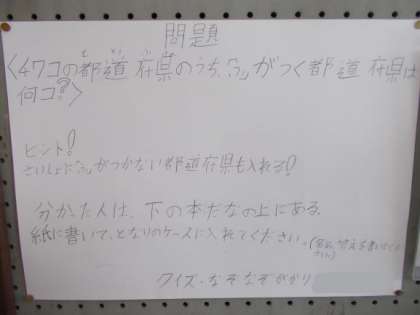 問題
と どう ふ けん
〈47コの都道府県のうち、「う」がつく都道府県は
何コ?〉
ヒント!
さいしょに「う」がつかない都道府県も入れる!
分かた人は、下の本だなの上にある
紙に書いて、となりのケースに入れてください。
クイズ・なぞなぞがかり